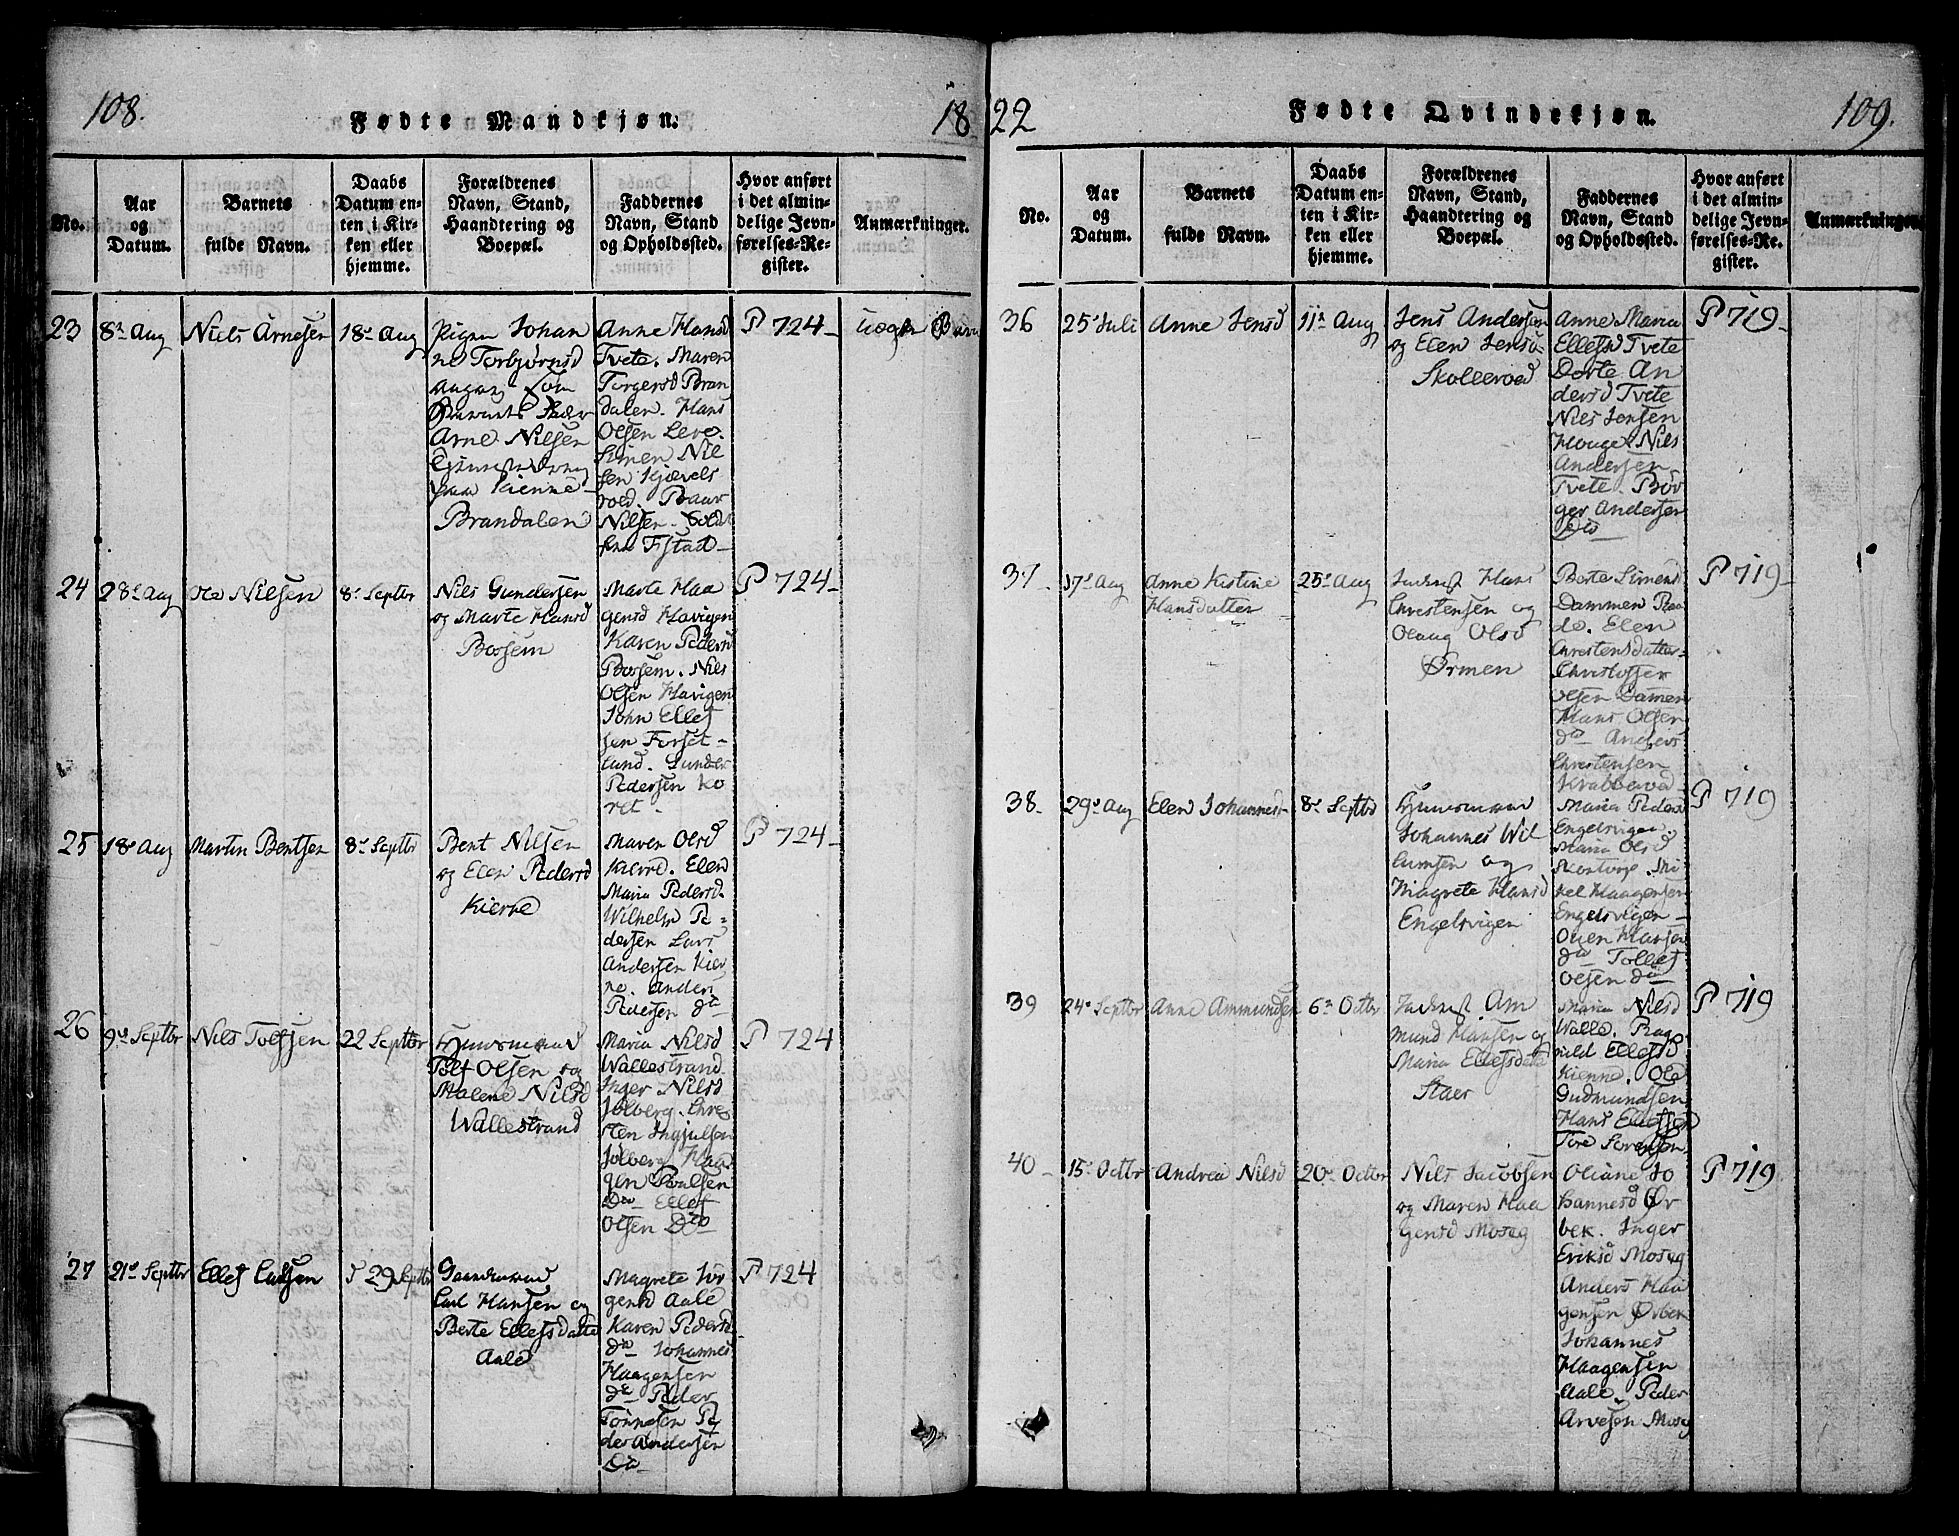 108.
Fødte Mandkjøn.
18
No.
Aar
og
Datum.
Barnets
fulde Navn.
Daabs
Datum en-
ten i Kir-
ken eller
hjemme.
Forældrenes
Navn, Stand,
Haandtering og
Boepæl.
Faddernes
Navn, Stand
og Opholdssted.
Hvor anført
i det almin-
delige Jevn-
førelses-Re-
gister.
Anmærkninger.
23
8de Aug
Niels Arnesen
18de Aug
Pigen Johan
ne Torbjørnsd
Barnets Fader
Arne Nilsen
Kienne
Brandalen
Anne Hansd
Tvete. Maren
Torgersd Bran
dalen. Hans
Olsen Leve.
Simen Nil
sen Kjævels
roed.
Nilsen.
P 724-
uægte Barn
24
28de Aug
Ole Nielsen
8de Septbr
Nils Gundersen
og Marte Hansd
Bossem
Marte Haa
gensd Havigen
Karen Pedersd
Bossem. Nils
Olsen Havigen
John Ellef
sen Torset-
lund. Gunder
Pedersen Ko
ret -
P 724-
25
18de Aug
Martin Bentsen
8de Septbr
Bent Nilsen
og Elen Pedersd
Kierre
Maren Olsd
Kierre. Elen
Maria Pedersd.
Wilhelm Pe-
dersen Lars
Andersen Kier
re. Anders
Pedersen do
P 724-
26
9de Septbr
Nils Tolfsen
22 Septbr
Huusmand
Tolf Olsen og
Malene Nilsd
Wallestrand
Maria Nilsd
Wallestrand
Inger Nilsd
Jølberg. Chre
sten Ingjulsen
Jølberg Haa
gen Poulsen
Do Ellef
Olsen Do
P 724
27
21de Septbr
Ellef Carlsen
d 29 Septbr
Gaardmand
Carl Hansen og
Berte Ellefsdatte
Aale
Magrete Jør
gensd Aale
Karen Pedersd
do Johannes
Haagensen
do Peder
Tønnesen Pe
der Andersen
Do
P 724
22
Fødte Qvindekjøn.
109.
No.
Aar
og
Datum.
Barnets
fulde Navn.
Daabs
Datum en-
ten i Kir-
ken eller
hjemme.
Forældrenes
Navn, Stand,
Haandtering og
Boepæl.
Faddernes
Navn, Stand
og Opholdssted.
Hvor anført
i det almin-
delige Jevn-
førelses-Re-
gister.
Anmærkninger.
36
25de Juli
Anne Jensd
11te Aug
Jens Andersen
og Elen Jensd
Skollerød
Anne Maria
Ellefsd Tvete
Dorte An
dersd Tvete
Nils Jensen
Houge. Nils
Andersen
Tvete. Bør
ger Andersen
do
P 719-
37-
17de Aug
Anne Kistine
Hansdatter
25de Aug
Inderst Hans
Chrestensen og
Olaug Olsd
Ørmen
Berte Simensd
Dammen
Elen
Chrestensdatter-
Christoffer
Olsen Damen
Hans Olsen
do Anders
Chrestensen
Krabberød
P 719-
38-
29de Aug
Elen Johannesd
8de Septbr
Huusmand
Johannes Wil
lumsen og
Magrete Hansd
Engelsvigen
Maria Peders
Engelsvigen.
Maria Olsd
Kontorp. Mi
kel Haagensen
Engelsvigen -
Ouen Hansen
do Tollef
Olsen do
P 719
39
24de Septbr
Anne Ammundsen
6te Octbr
Inderst Am
mund Hansen og
Maria Ellefsdatte
Staer
Maria Nilsd
Walle. Rag
nild Ellefsd
Kienne. Ole
Gudmundsen
Hans Ellefsen
Tore Sørensen
P 719
40-
15de Octbr
Andrea Nilsd
20de Octbr
Nils Jacobsen
og Maren Haa
gensd Moseg
Oliane Jo
hannesd Ør
bek. Inger
Eriksd Moseg
Anders Haa
gensen Ørbek
Johannes
Haagensen
Aale. Peder
Arvesen Moseg
P 719